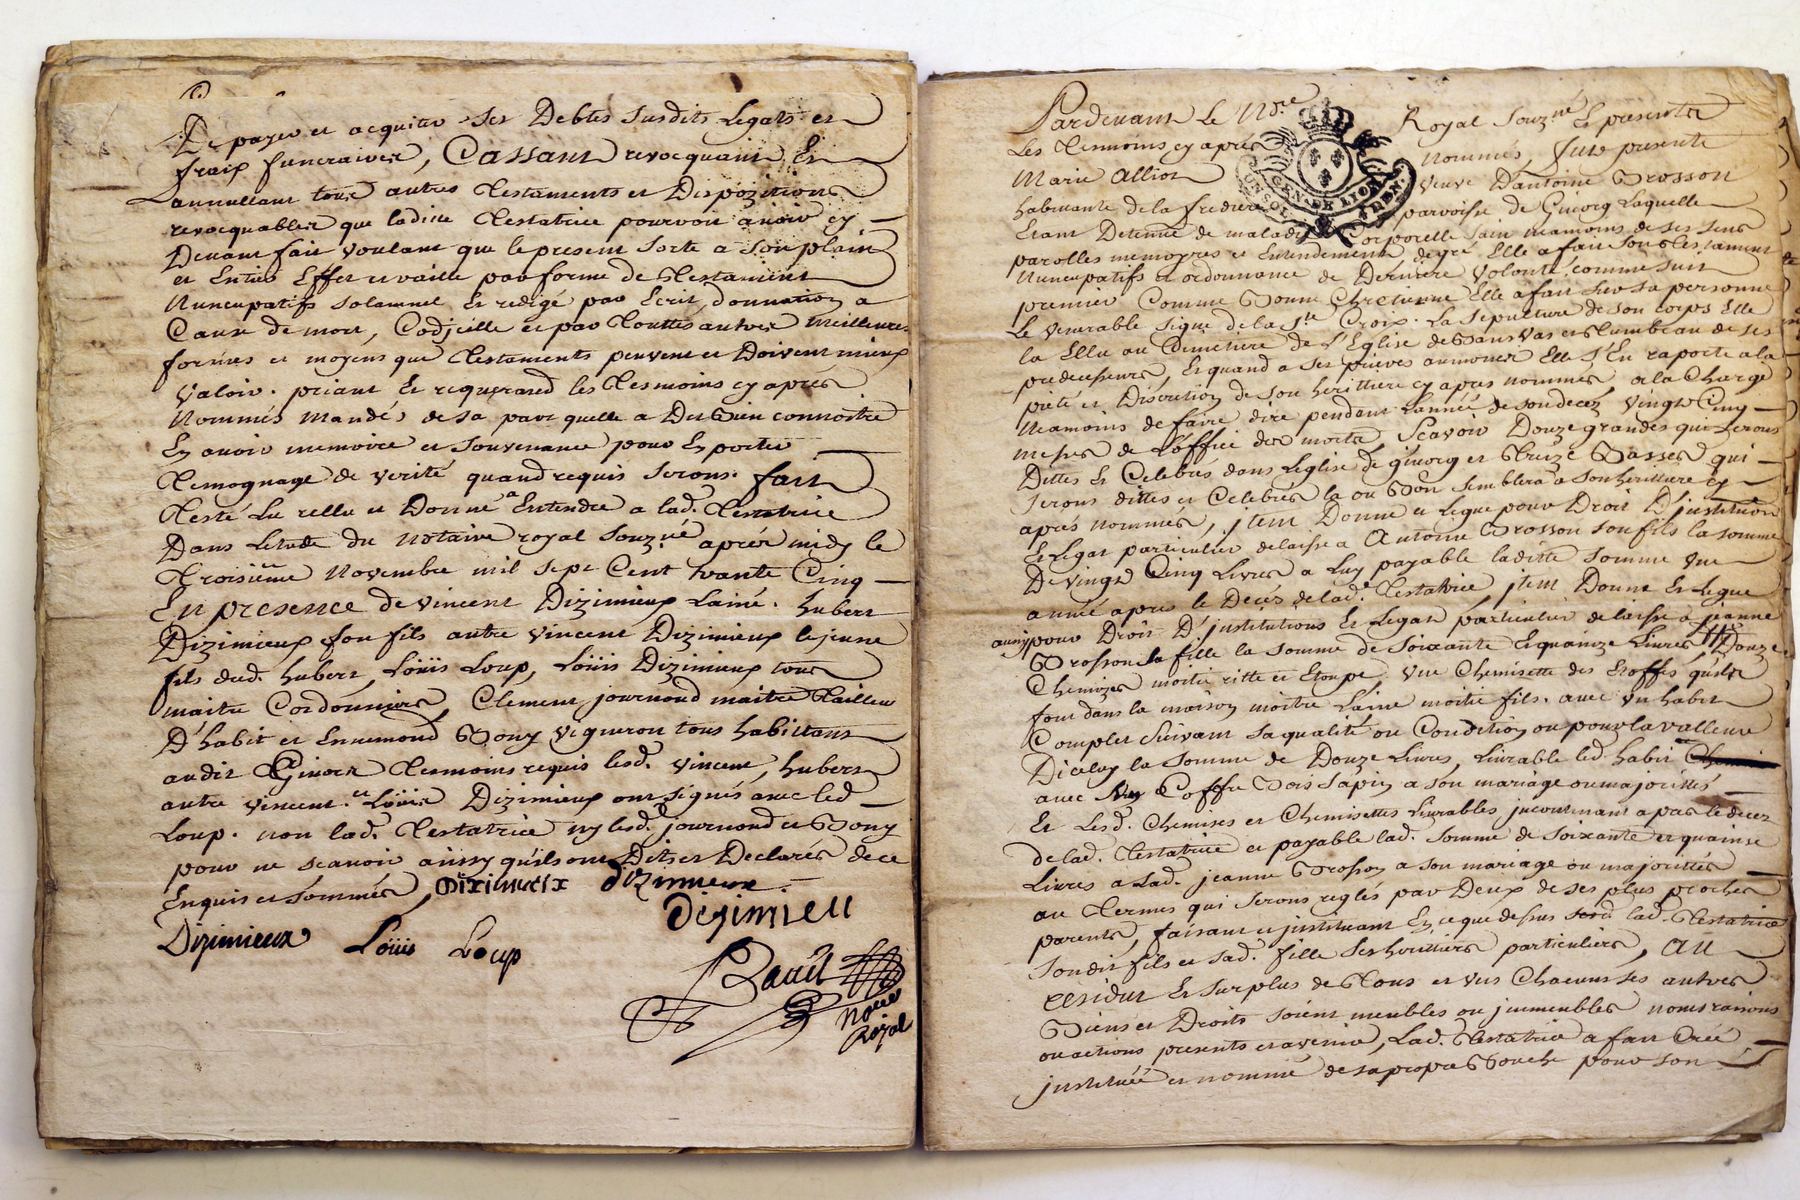 De payer et acquiter ses Debtes susdits Legats et
fraix funeraires, Cassant revocquant Et
annullant tous autres Testaments et Dispozitions
revocquables que ladite Testatrice pourroit avoir cy
Devant fait voulant que le present sorte a son plain
et Entier Effet et vaille par forme de Testament
Nuncupatifs solamnel Et redigé par Ecrit, donnation a
Cause de mort, Codicille et par Touttes autres meilleures
formes et moyens que Testaments peuvent et Doivent mieux
valoir. priant Et requerand les Tesmoins cy après
Nommés mandés de sa part quelle a Dit Bien connoitre
En avoir memoire et souvenance pour En porter
Temognage de verité quand requis serons. fait
Testé Lu rellu et Donné a Entendre a lad. Testatrice
Dans Letude du notaire royal souzné après midy le
Troisième Novembre mil sept Cent trante Cinq
En presence de vincent Dizimieux Lainé. hubert
Dizimieux son fils autre vincent Dizimieux lejeune
fils dud. hubert, Loüis Loup, Loüis Dizimieux tous
maitre Cordonniers, Clement journond maitre Tailleur
D'habit et Ennemond Bony vigneron tous habittans
audit Givors Tesmoins requis lesd. vincent, hubert
autre vincent et Loüis Dizimieux ont signés avec led
Loup. non lad. Testatrice ny lesd. journond et Bony
pour ne scavoir ainsy quils ont Dit et Declarés de ce
Enquis et sommés, Diximieix dizimieux
dezimieu
Dizimieux Loüis Loup
noire
Royal
Pardevant Le Nore Royal Souzné Et presents
Les Tesmoins cy après nommés, fute presente
Marie Alliot veuve D'antoine Brosson
habitante de la fredière parroisse de Givorg Laquelle
Etant Detenue de maladie Corporelle sain neamoins de ses sens
parolles memoyres et Entendement de gré Elle a fait son Testament
Nuncupatifs et ordonnance de Dernière volonté comme suit
premier Comme Bonne Chretienne Elle a fait sur sa personne
Le venerable signe de la Ste Croix. La sepulture de son corps Elle
la Ellu au Cimetiere de l'Eglise de vas et Tumbeau de ses
predecesseurs, Et quand a ses prieres aumones Elle S'En raporte a la
pieté et Discretion de son herittiere cy apres nommés, a la Charge
Neamoins de faire dire pendant Lannée de son decez vingt Cinq
messes de Loffice des morts, Scavoir Douze grandes qui Serons
Dittes Et Celebrés dans Leglise de givorg et Treize Basses qui
Serons dittes et Celebrés la ou Bon semblera a son heritiere cy
après nommés, jtem Donne et Legue pour Droit D'jnstitution
Et Legat particulier delaisse a Antoine Brosson son fils la somme
De vingt Cinq Livres a Luy payable laditte somme une
année apres le Deces de lad. Testatrice, jtem Donne Et Legue
aussy pour Droit D'jnstitutions Et Legat particulier delaisse a jeanne
Brosson sa fille la somme de Soixante Et quainze Livres Douze
Chemizes moitie ritte et Etoupe, une Chemisette des Etoffes quils
font dans la maison moitie Laine moitie fils. avec un habit
Complet Suivant sa qualité ou Condition ou pour la valleur
Dicelluy la somme de Douze Livres, Livrable led habit
avec un Coffre Bois Sapin a son mariage ou majorittés
Et Lesd. Chemises et Chemisettes Livrables jncontinant apas le decez
de lad. Testatrice et payable lad. somme de soixante et quainse
Livres a Lad. jeanne Brosson a son mariage ou majorittés
au Termes qui serons reglés par Deux de ses plus proches
parents, faisant et jnstituant En ce que dessus lad. Testatrice
Son dit fils et sad. fille Ses herittiers particuliers, Au
Residue Et surplus de Tous et uns Chacuns ses autres
Biens et Droits soient meubles ou jmmeubles noms raisons
ou actions presents et avenir, Lad. Testatrice a fait Créé
jnstituée et nommé de sa propre Bouche pour son
GEN. DE LION